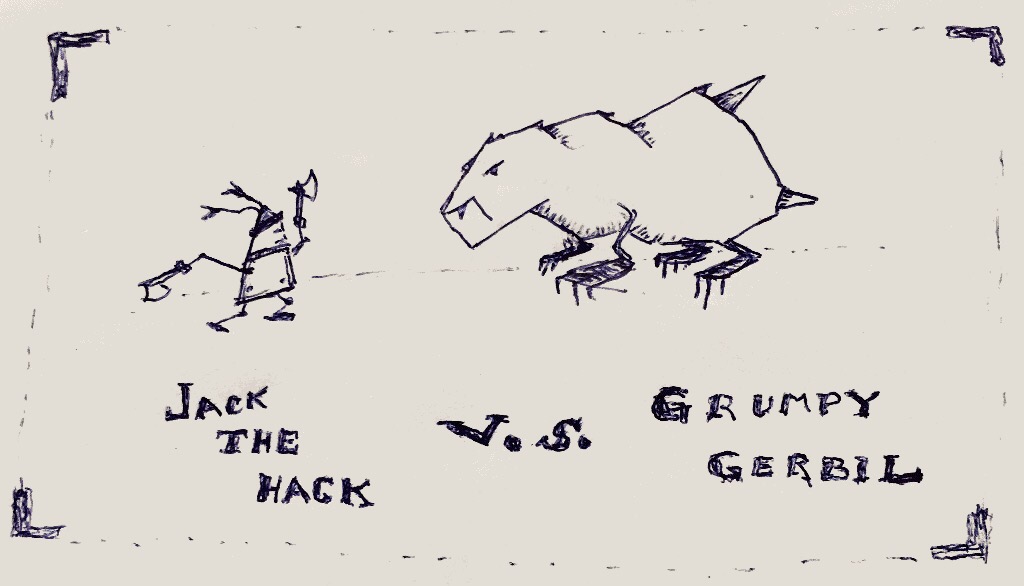 JACK
THE
HACK
V.S.
GRUMPY
GERBIL